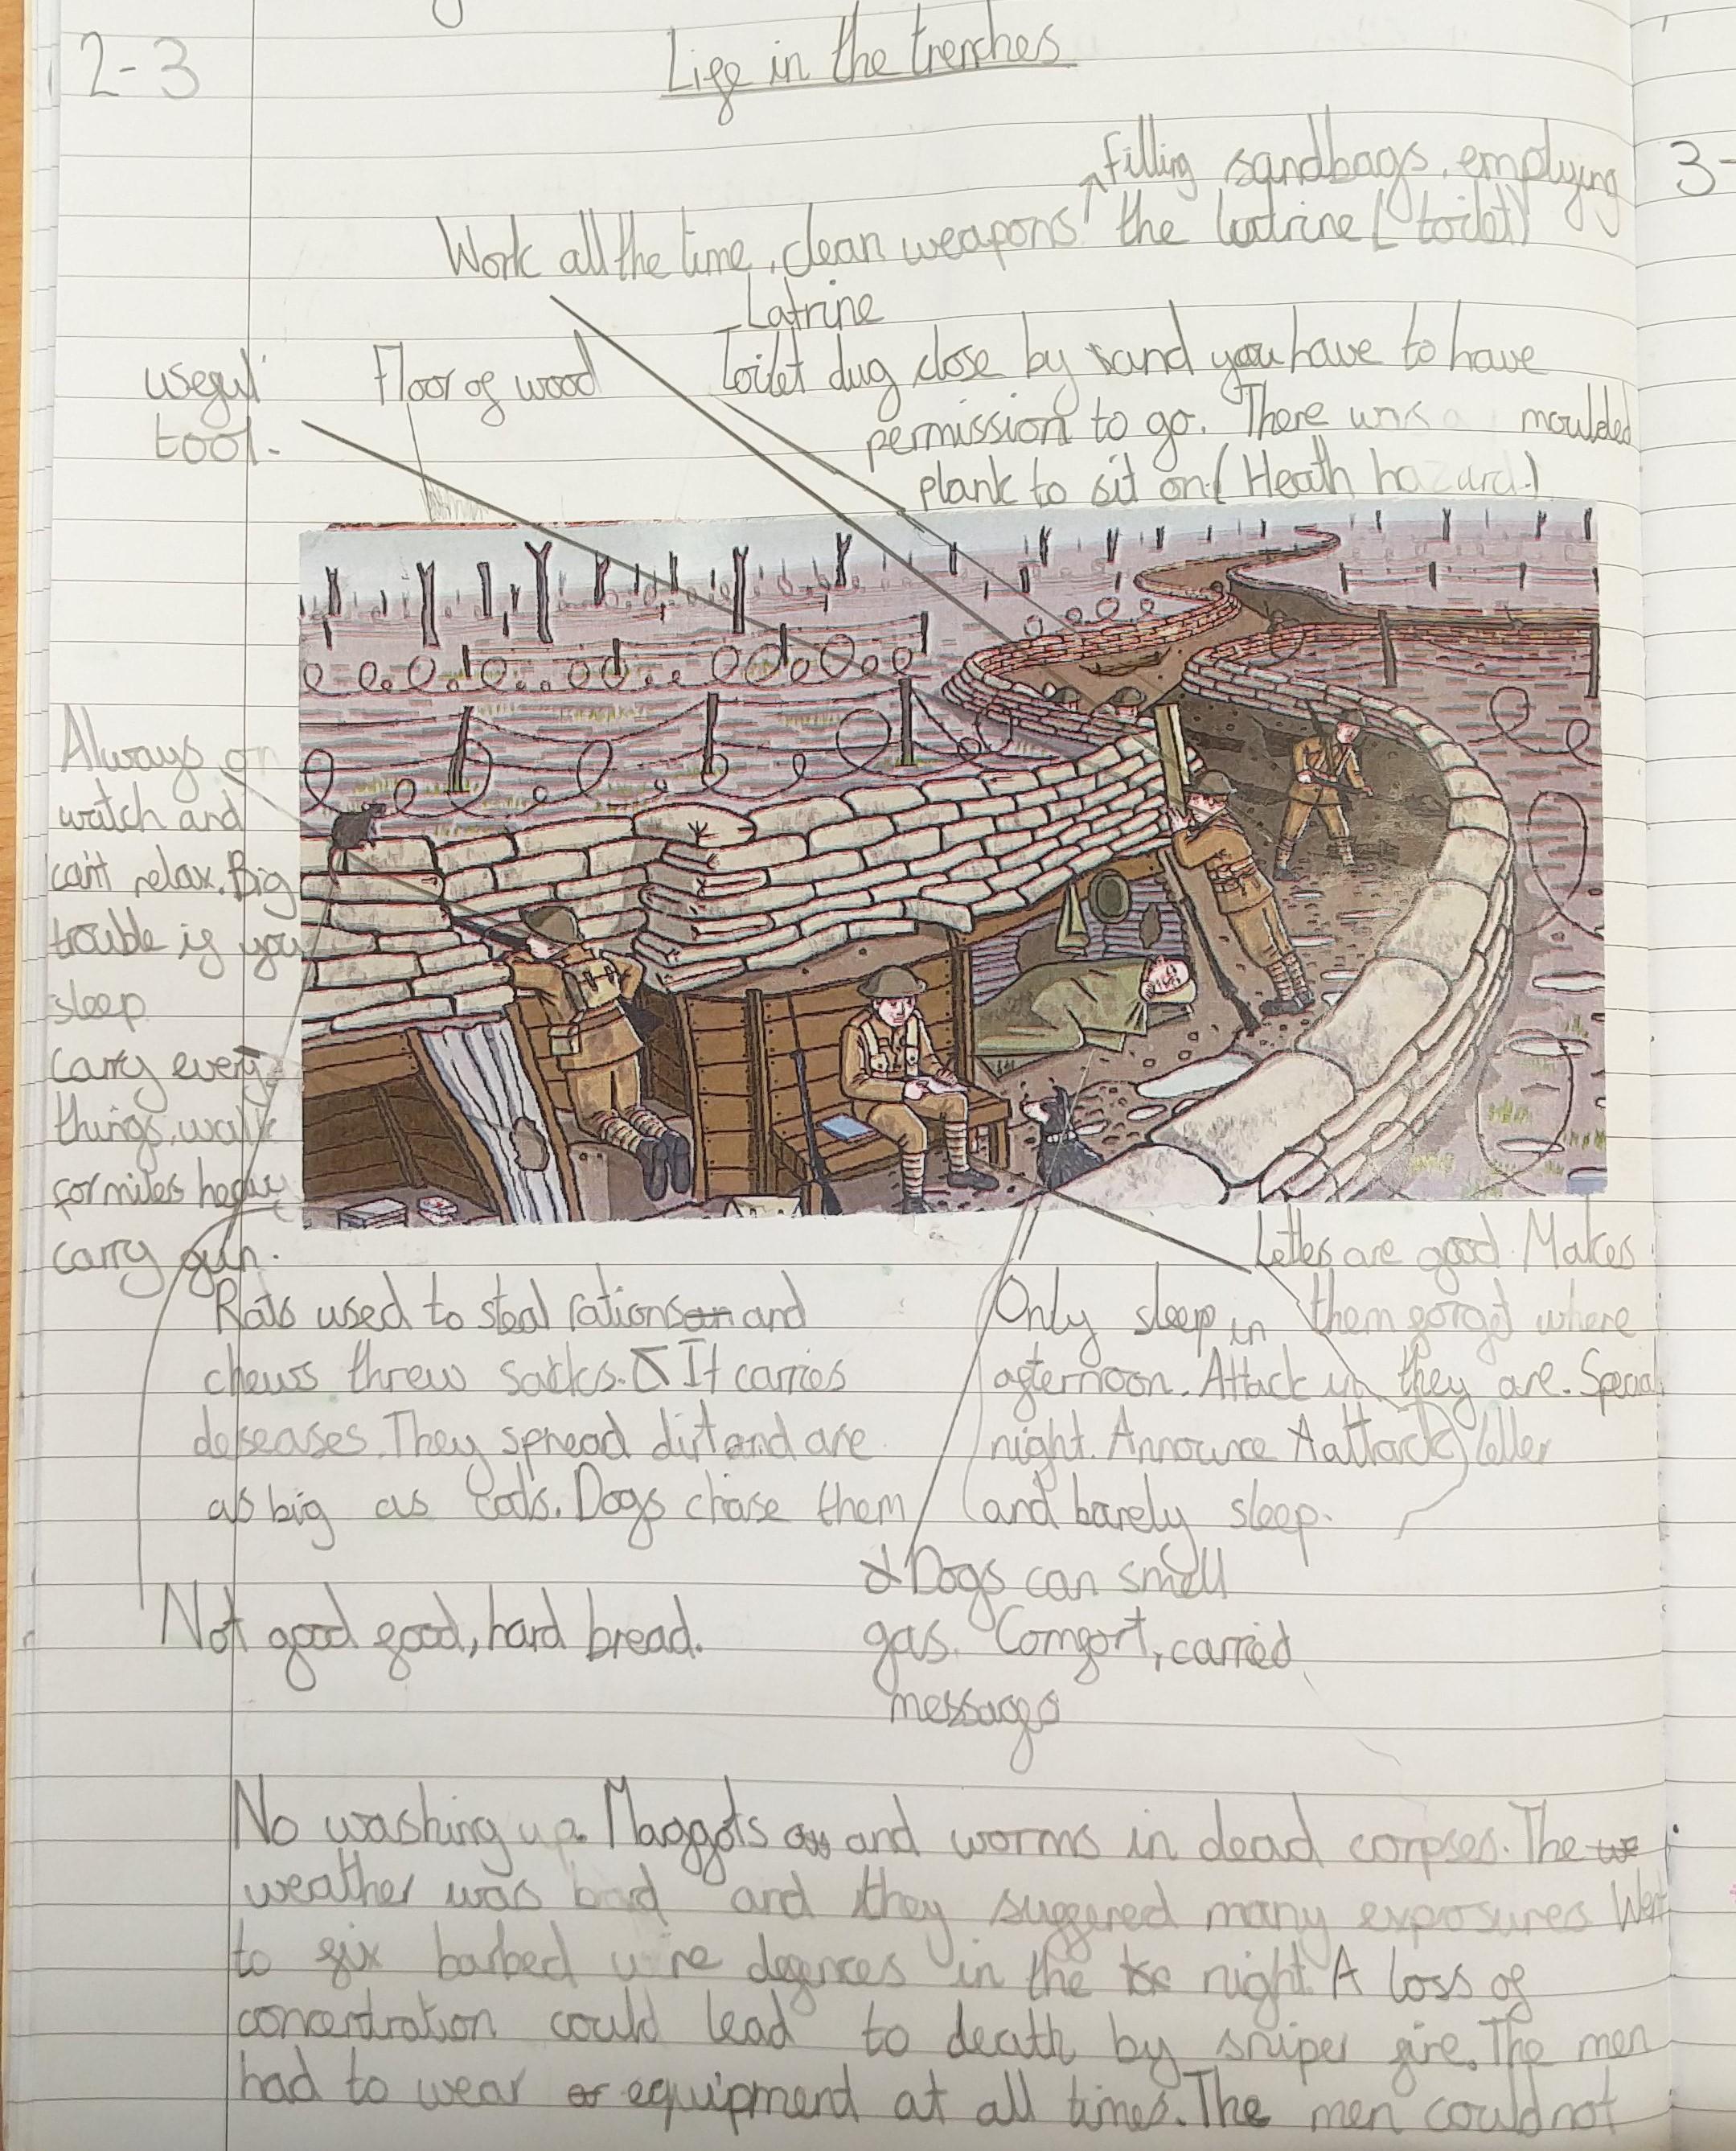 2-3
Life in the trenches
3-
Filling sandbags, emptying
Work all the time, clean weapons the latrine (toilet)
Latrine
Toilet dug close by and you have to have
permission to go. There was a moulded
plank to sit on (Heath hazard.)
useful
tool.
Floor of wood
Always on
watch and
can't relax. Big
trouble if you
sleep
Carry every
things, walk
for miles heavy
carry gun.
Letters are good. Makes
them forget where
they are. Special
letter
Rats used to steal rations and
chews threw sacks. It carries
deseases. They spread dirt and are
as big as cats. Dogs chase them
Only sleep in
afternoon. Attack in
night. Announce attack
and barely sleep.
Dogs can smell
gas. Comfort, carried
messages
Not good food, hard bread.
No washing up. Maggots and worms in dead corpses. The we
weather was bad and they suffered many exposures Went
to fix barbed wire defences in the night. A loss of
concentration could lead to death by sniper fire. The men
had to wear equipment at all times. The men could not